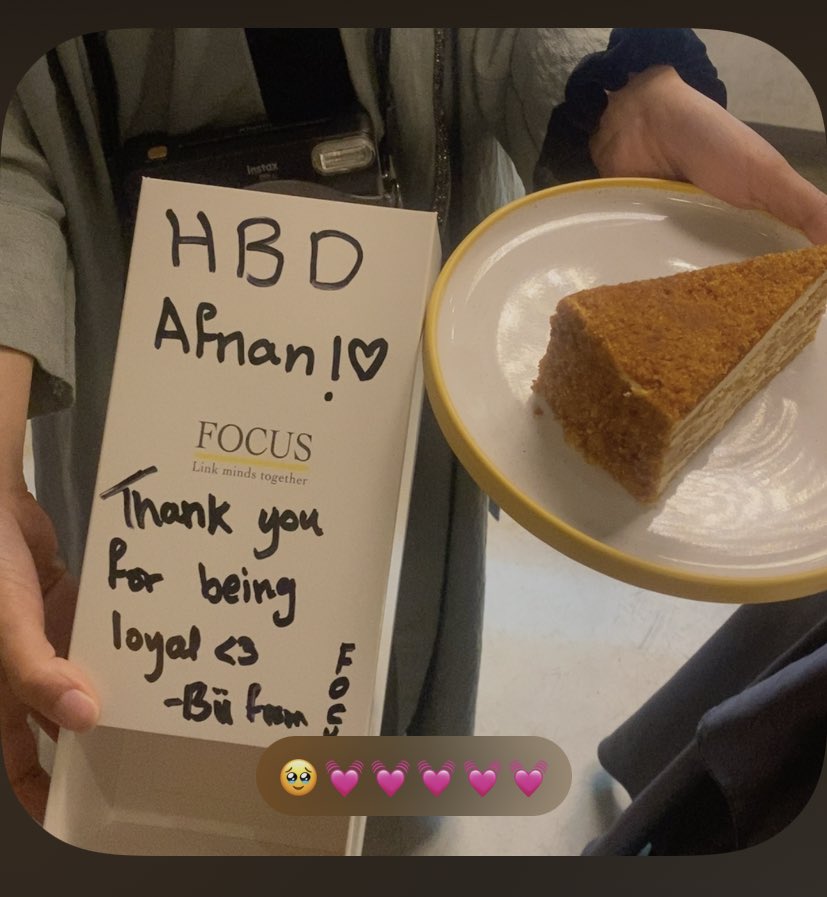 instax
HBD
Afnan!♡
FOCUS
Link minds together
Thank you
for being
loyal <3
-Bii from
FOCU
🥹💓💓💓💓💓